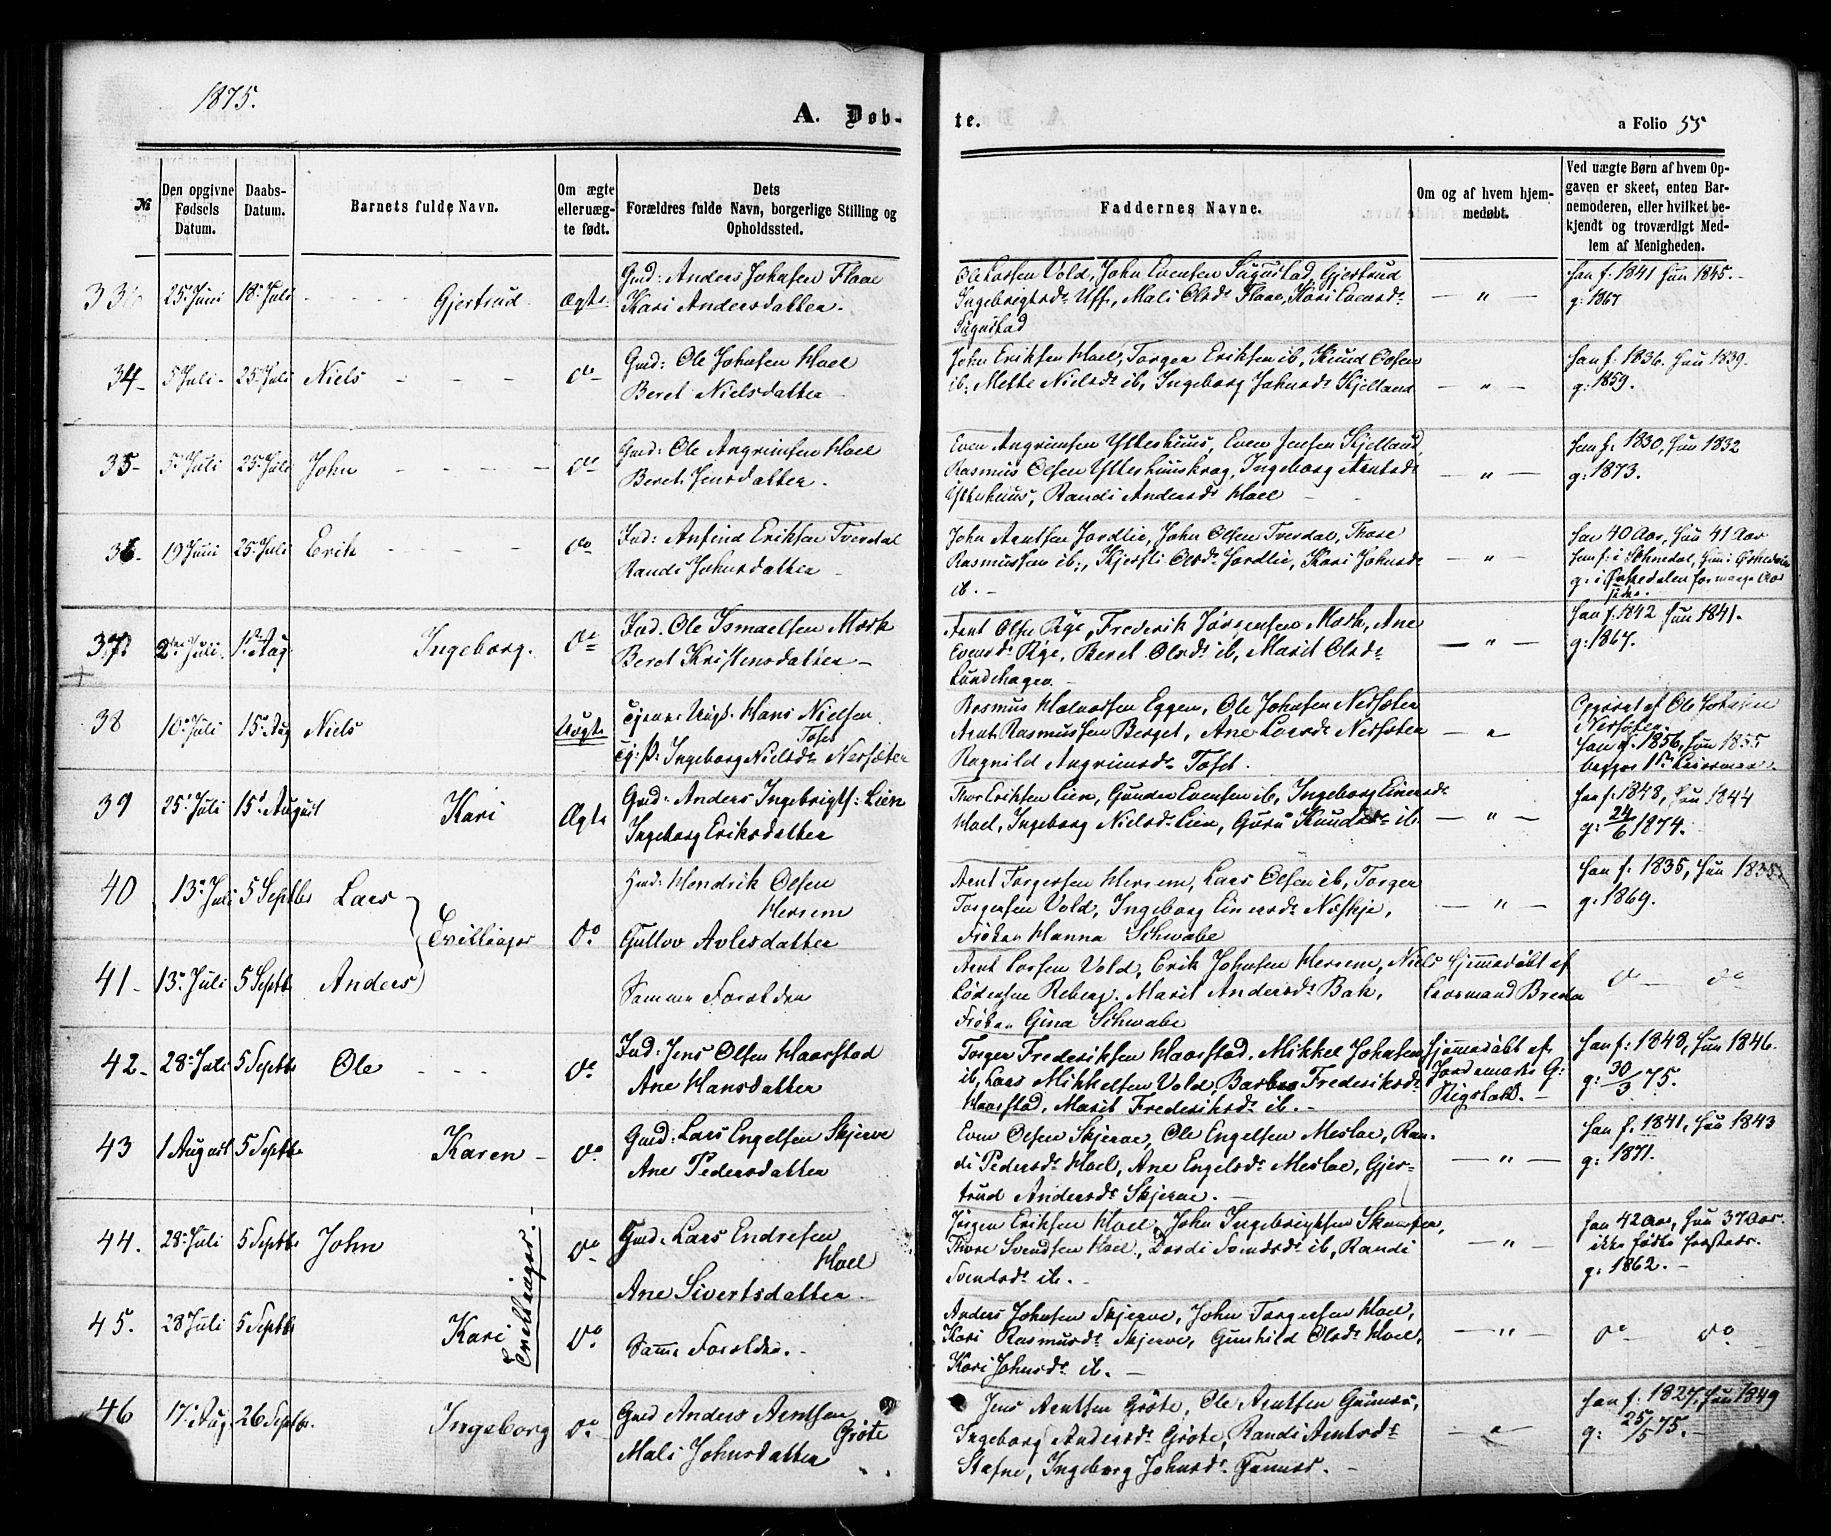 1875.
A. Døb-
te.
a Folio 55
№
Den opgivne Fødsels Datum.
Daabs-Datum.
Barnets fulde Navn.
Om ægte eller uægte født.
Dets Forældres fulde Navn, borgerlige Stilling og Opholdssted.
Faddernes Navne.
Om og af hvem hjemmedøbt.
Ved uægte Børn af hvem Opgaven er skeet, enten Barnemoderen, eller hvilket bekjendt og troværdigt Medlem af Menigheden.
33 25 Juni 18 Juli - - - - Gjertrud Ægte
Gmd: Anders Johnsen Flaae
Kari Andersdatter.
Ole Larsen Vold, John Evensen Sugustad, Gjertrud
Ingebrigtsdr Uff, Mali Olsdr Flaae, Kari Evensdr
Sugustad
— " —
han f. 1841 hun 1845.
g: 1867
34 5 Juli 25 Juli Niels - - - do
Gmd: Ole Johnsen Hoel
Beret Nielsdatter
John Eriksen Hoel, Torger Eriksen ib, Knud Olsen
ib, Mette Nielsdr ib, Ingeborg Johnsdr Kjelland
— " —
han f. 1836. hun 1839.
g: 1859.
35 5 Juli 25 Juli John - - - - do
Gmd: Ole Angrimsen Hoel
Beret Jensdatter.
Even Angrimsen Ytterhuus, Even Jensen Kjelland,
Rasmus Olsen Ytterhuuskrog, Ingeborg Arntsdr
Ytterhuus, Randi Andersdr Hoel
— " —
han f. 1830, hun 1832
g: 1873.
36 19 Juni 25 Juli Erik - - - - do
Ind: Anfind Eriksen Tverdal
Randi Johnsdatter
John Arntsen Jordlie, John Olsen Tverdal, Thore
Rasmussen ib;, Kjersti Olsdr Jordlie, Kari Johnsdr
ib. -
— " —
han 40 Aar, hun 41 Aar
han f: i Soknedal, hun i Ørkedalen
g: i Ørkedalen for mange Aar
siden.
37 2 Juli 1 Aug Ingeborg. do
Ind. Ole Ismaelsen Mærk
Beret Kristensdatter
Arnt Olsen Rye, Frederik Jørgensen Mærk, Ane
Evensdr Rye, Beret Olsdr ib, Marit Olsdr
Lundehagen.
— " —
han f. 1842 hun 1841.
g: 1867.
38 10 Juli 15 Aug Niels Uægte
Tjener Ungk. Hans Nielsen
Tofet
Tj: P: Ingeborg Nielsdr Nersæter
Rasmus Halvorsen Eggen, Ole Johnsen Nersæter
Arnt Rasmussen Berget, Ane Larsdr Nersæter
Ragnild Angrimsdr Tofet.
— " —
Opgivet af Ole Johnsen
Nersæter.
han f. 1856, hun 1855
begges 1ste Leiermaal.
39 25 Juli 15 August Kari Ægte
Gmd: Anders Ingebrigts: Lien
Ingeborg Eriksdatter
Thor Eriksen Lien, Gunder Evensen ib, Ingeborg Einersdr
Hoel, Ingeborg Nielsdr Lien, Guru Knudsdr ib.
— " —
han f. 1848, hun 1844
g: 24/6 1874.
40 13 Juli 5 Septbr Lars
Tvillinger do
Gmd: Hendrik Olsen
Herrem
Gullov Avlesdatter
Arnt Torgersen Herrem, Lars Olsen ib, Torger
Torgersen Vold, Ingeborg Einersdr Næskje,
Frøken Hanna Schwabe
— " —
han f. 1835, hun 1835
g: 1869.
41 13 Juli 5 Septb Anders
Samme Forældre
Arnt Larsen Vold, Erik Johnsen Herrem, Niels
Lødersen Reberg. Marit Andersdr Bak,
Frøken Gina Schwabe
Hjemmedøbt af
Læremand Breda
do — do
42 28 Juli 5 Septbr Ole - - - do
Ind: Jens Olsen Haarstad
Ane Hansdatter
Torger Frederiksen Haarstad, Mikkel Johnsen
ib, Lars Mikkelsen Vold, Barbro Frederiksdr
Haarstad, Marit Frederiksdr ib.
Hjemmedøbt af
Jordemoder G:
Rigstad. -
han f: 1848, hun 1846
g: 30/3 75.
43 1 August 5 Septbr Karen - do
Gmd: Lars Engelsen Skjerve
Ane Pedersdatter
Even Olsen Skjerve, Ole Engelsen Mesloe, Ran-
di Pedersdr Hoel, Ane Engelsdr Mesloe, Gjer-
trud Andersdr Skjerve. -
— " —
han f. 1841, hun 1843
g: 1871.
44. 28 Juli 5 Septbr John do
Tvillinger.
Gmd: Lars Endresen
Hoel
Ane Sivertsdatter
Jørgen Eriksen Hoel, John Ingebrigtsen Skamfer,
Thore Svendsen Hoel, Dordi Svendsdr ib, Randi
Svendsdr ib. -
— " —
han 42 Aar, hun 37 Aar.
ikke fødte herstedes.
g: 1862. -
45. 28 Juli 5 Septbr Kari do
Samme Forældre. -
Anders Johnsen Skjerve, John Torgersen Hoel,
Kari Rasmusdr Skjerve, Gunhild Olsdr Hoel,
Kari Johnsdr ib. -
— " —
do do
46 17 Aug 26 Septbr. Ingeborg do
Gmd Anders Arntsen
Grøte
Mali Johnsdatter
Jens Arntsen Grøte, Ole Arntsen Gunnes,
Ingeborg Andersdr Grøte, Randi Arntsdr
Stafne, Ingeborg Johnsdr Gunnes. -
— " —
han f. 1827, hun 1849
g: 25/5 75.